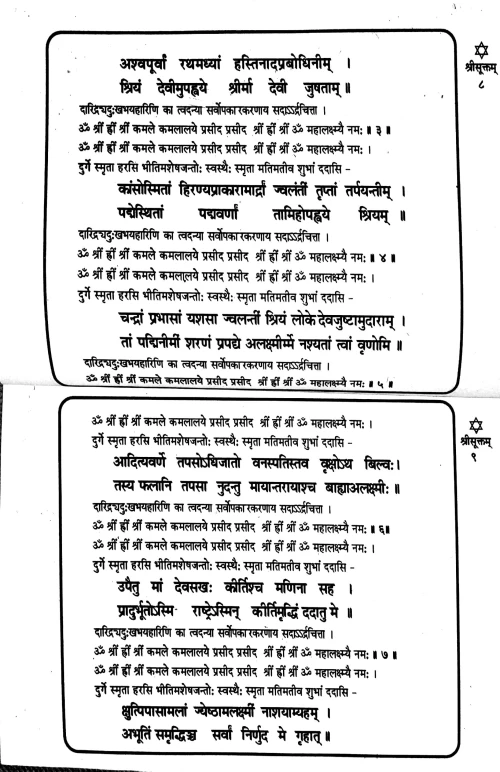 श्रीसूक्तम्
८
अश्वपूर्वां रथमध्यां हस्तिनादप्रबोधिनीम् ।
श्रियं देवीमुपह्वये श्रीर्मा देवी जुषताम् ॥
दारिद्र्यदुःखभयहारिणि का त्वदन्या सर्वोपकारकरणाय सदाऽऽर्द्रचित्ता ।
ॐ श्रीं ह्रीं श्रीं कमले कमलालये प्रसीद प्रसीद श्रीं ह्रीं श्रीं ॐ महालक्ष्म्यै नमः ॥ ३ ॥
ॐ श्रीं ह्रीं श्रीं कमले कमलालये प्रसीद प्रसीद श्रीं ह्रीं श्रीं ॐ महालक्ष्म्यै नमः ।
दुर्गे स्मृता हरसि भीतिमशेषजन्तोः स्वस्थैः स्मृता मतिमतीव शुभां ददासि -
कांसोस्मितां हिरण्यप्राकारामार्द्रां ज्वलंतीं तृप्तां तर्पयन्तीम् ।
पद्मेस्थितां पद्मवर्णां तामिहोपह्वये श्रियम् ॥
दारिद्र्यदुःखभयहारिणि का त्वदन्या सर्वोपकारकरणाय सदाऽऽर्द्रचित्ता ।
ॐ श्रीं ह्रीं श्रीं कमले कमलालये प्रसीद प्रसीद श्रीं ह्रीं श्रीं ॐ महालक्ष्म्यै नमः ॥ ४ ॥
ॐ श्रीं ह्रीं श्रीं कमले कमलालये प्रसीद प्रसीद श्रीं ह्रीं श्रीं ॐ महालक्ष्म्यै नमः ।
दुर्गे स्मृता हरसि भीतिमशेषजन्तोः स्वस्थैः स्मृता मतिमतीव शुभां ददासि -
चन्द्रां प्रभासां यशसा ज्वलन्तीं श्रियं लोके देवजुष्टामुदाराम् ।
तां पद्मिनीमीं शरणं प्रपद्ये अलक्ष्मीर्म्मे नश्यतां त्वां वृणोमि ॥
दारिद्र्यदुःखभयहारिणि का त्वदन्या सर्वोपकारकरणाय सदाऽऽर्द्रचित्ता ।
ॐ श्रीं ह्रीं श्रीं कमले कमलालये प्रसीद प्रसीद श्रीं ह्रीं श्रीं ॐ महालक्ष्म्यै नमः ॥ ५ ॥
श्रीसूक्तम्
९
ॐ श्रीं ह्रीं श्रीं कमले कमलालये प्रसीद प्रसीद श्रीं ह्रीं श्रीं ॐ महालक्ष्म्यै नमः ।
दुर्गे स्मृता हरसि भीतिमशेषजन्तोः स्वस्थैः स्मृता मतिमतीव शुभां ददासि -
आदित्यवर्णे तपसोऽधिजातो वनस्पतिस्तव वृक्षोऽथ बिल्वः।
तस्य फलानि तपसा नुदन्तु मायान्तरायाश्च बाह्याअलक्ष्मीः ॥
दारिद्र्यदुःखभयहारिणि का त्वदन्या सर्वोपकारकरणाय सदाऽऽर्द्रचित्ता ।
ॐ श्रीं ह्रीं श्रीं कमले कमलालये प्रसीद प्रसीद श्रीं ह्रीं श्रीं ॐ महालक्ष्म्यै नमः ॥ ६॥
ॐ श्रीं ह्रीं श्रीं कमले कमलालये प्रसीद प्रसीद श्रीं ह्रीं श्रीं ॐ महालक्ष्म्यै नमः ।
दुर्गे स्मृता हरसि भीतिमशेषजन्तोः स्वस्थैः स्मृता मतिमतीव शुभां ददासि -
उपैतु मां देवसखः कीर्तिश्च मणिना सह ।
प्रादुर्भूतोऽस्मि राष्ट्रेऽस्मिन् कीर्तिमृद्धिं ददातु मे ॥
दारिद्र्यदुःखभयहारिणि का त्वदन्या सर्वोपकारकरणाय सदाऽऽर्द्रचित्ता ।
ॐ श्रीं ह्रीं श्रीं कमले कमलालये प्रसीद प्रसीद श्रीं ह्रीं श्रीं ॐ महालक्ष्म्यै नमः ॥ ७ ॥
ॐ श्रीं ह्रीं श्रीं कमले कमलालये प्रसीद प्रसीद श्रीं ह्रीं श्रीं ॐ महालक्ष्म्यै नमः ।
दुर्गे स्मृता हरसि भीतिमशेषजन्तोः स्वस्थैः स्मृता मतिमतीव शुभां ददासि -
क्षुत्पिपासामलां ज्येष्ठामलक्ष्मीं नाशयाम्यहम् ।
अभूतिं समृद्धिञ्च सर्वां निर्णुद मे गृहात् ॥